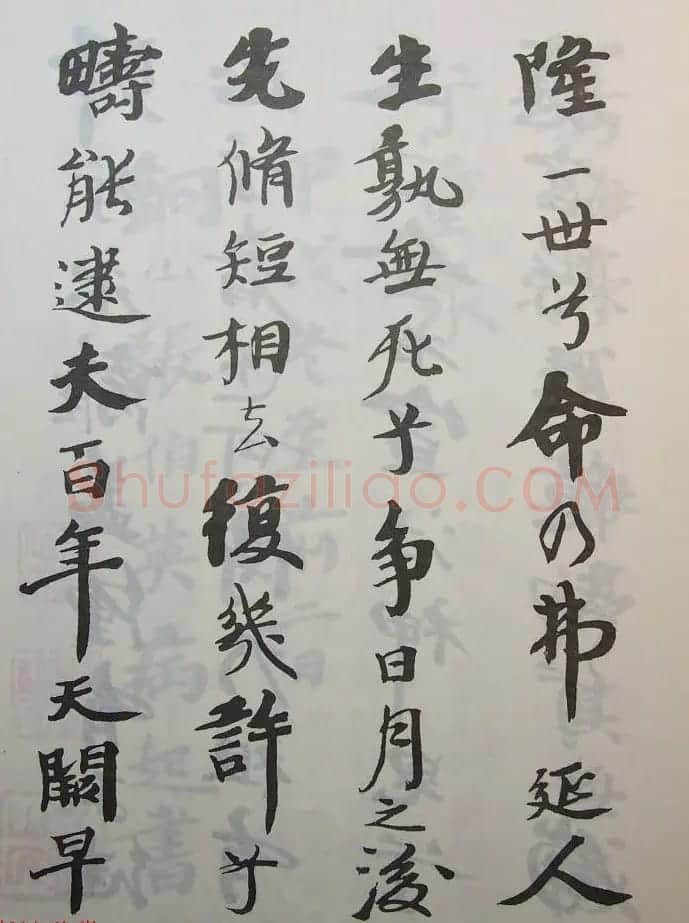 隆一世兮命乃弗延人
生孰無死兮争日月之後
先脩短相去復幾許兮
疇能逮夫百年天闕早
Shufaziliao.COM